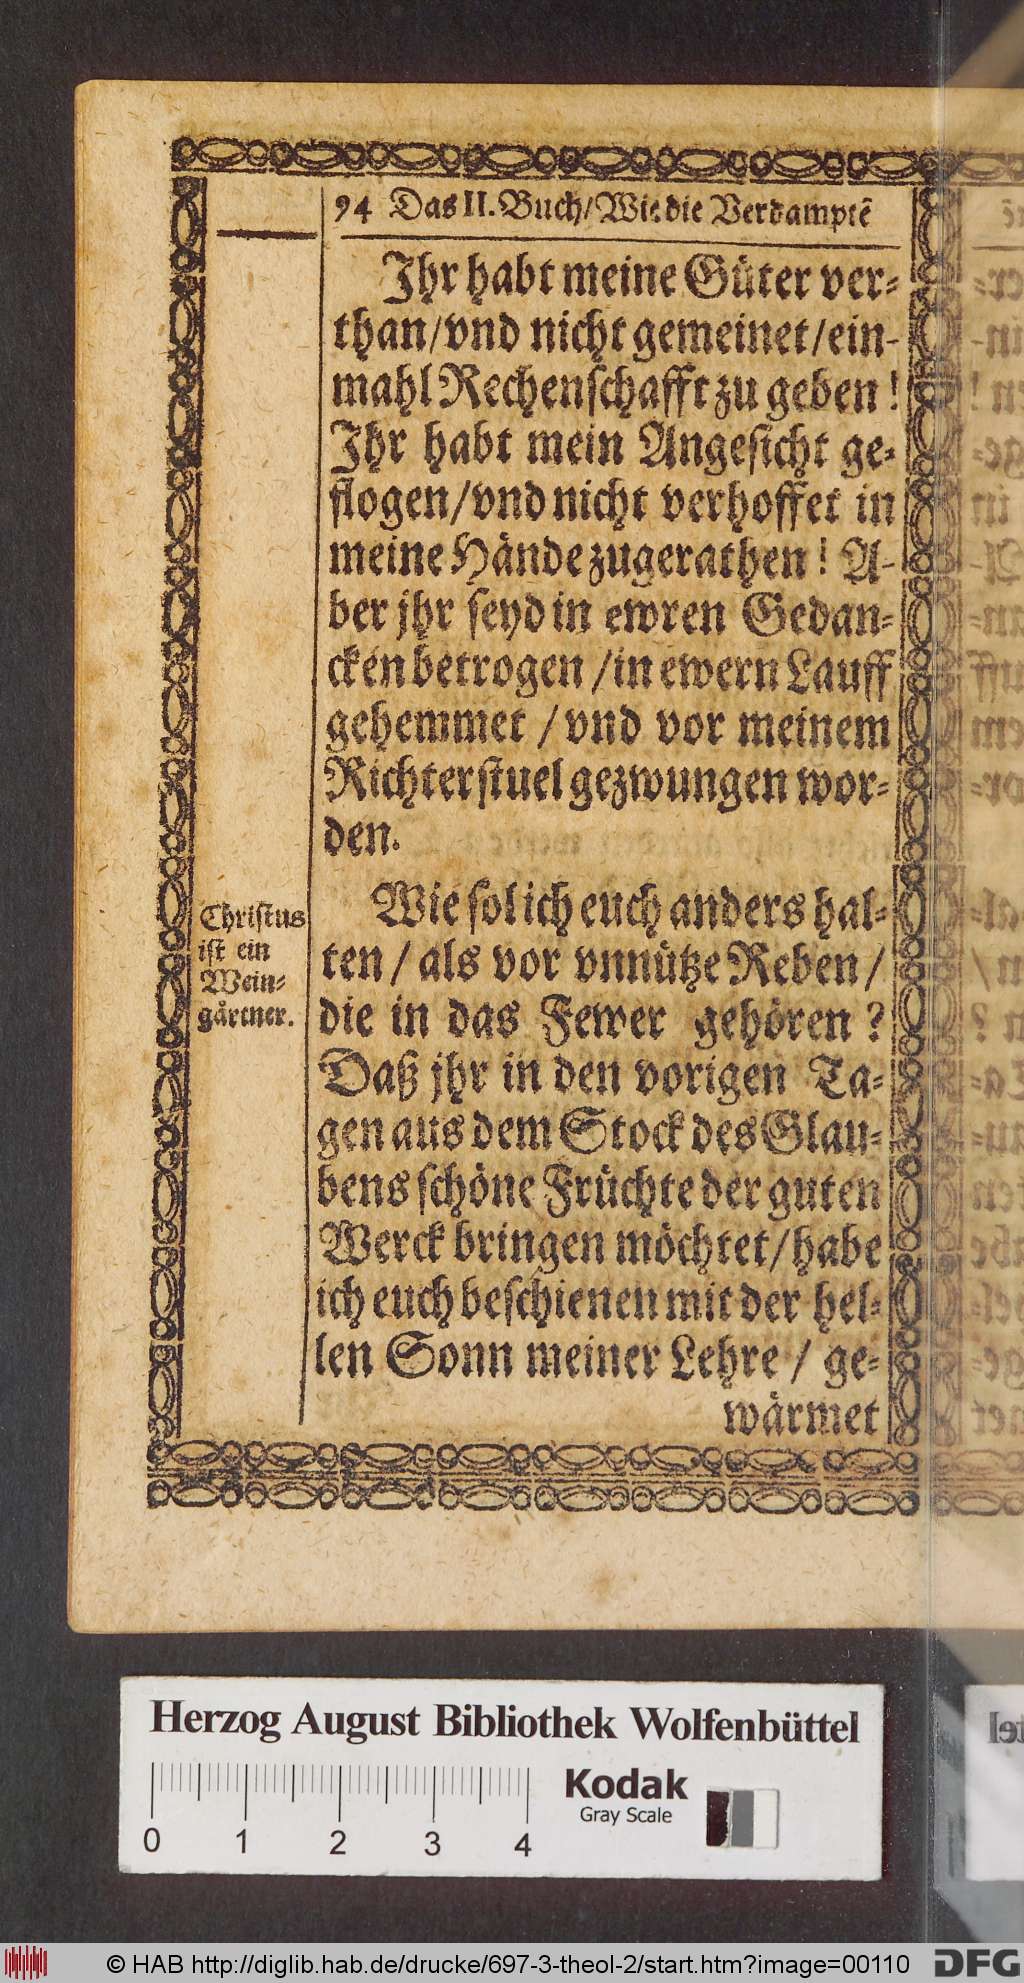 94 Das II. Buch/ Wie die Verdamptẽ
Ihr habt meine Güter ver-
than/vnd nicht gemeinet/ein-
mahl Rechenschafft zu geben!
Ihr habt mein Angesicht ge-
flogen/vnd nicht verhoffet in
meine Hände zugerathen! A-
ber jhr seyd in ewren Gedan-
cken betrogen /in ewern Lauff
gehemmet / vnd vor meinem
Richterstuel gezwungen wor-
den.
Wie sol ich euch anders hal-
ten / als vor vnnütze Reben/
die in das Fewer gehören?
Daß jhr in den vorigen Ta-
gen aus dem Stock des Glau-
bens schöne Früchte der guten
Werck bringen möchtet/habe
ich euch beschienen mit der hel-
len Sonn meiner Lehre / ge-
wärmet
Christus
ist ein
Wein-
gärtner.
Herzog August Bibliothek Wolfenbüttel
Kodak
Gray Scale
0 1 2 3 4
© HAB http://diglib.hab.de/drucke/697-3-theol-2/start.htm?image=00110
DFG